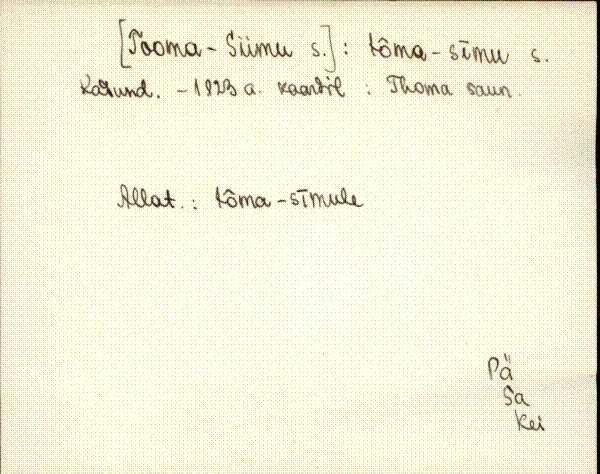 [Tooma-Siimu s.] : tôma-sīmu s.
Kadund. - 1823 a. kaardil : Thoma saun.
Allat. : tôma-sīmule
Pä
Sa
Kei